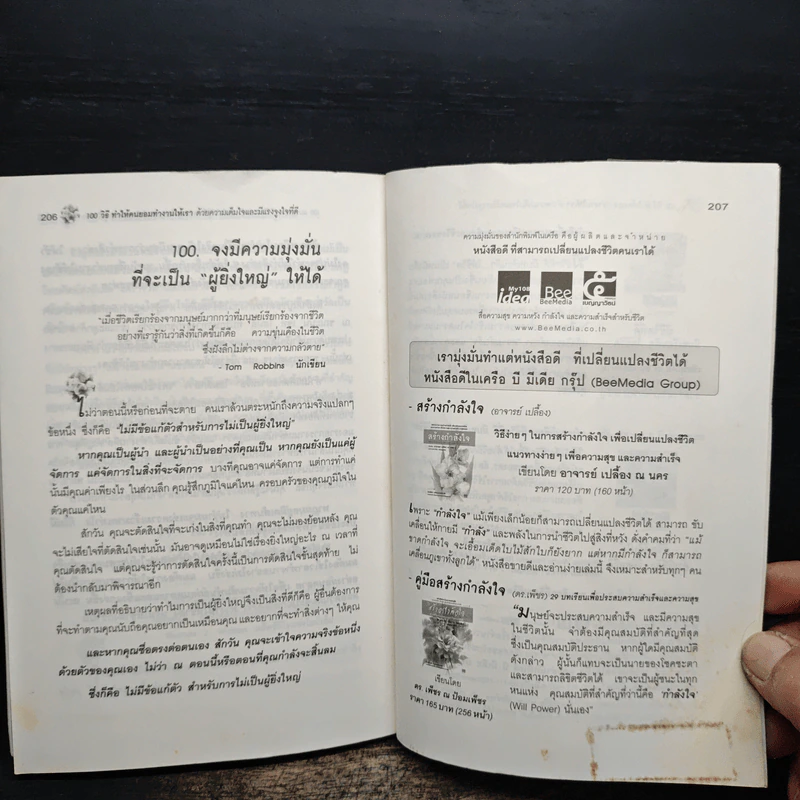 206 100 วิธี ทำให้คนยอมทำงานให้เรา ด้วยความเต็มใจและมีแรงจูงใจที่ดี
100. จงมีความมุ่งมั่น
ที่จะเป็น “ผู้ยิ่งใหญ่” ให้ได้
"เมื่อชีวิตเรียกร้องจากมนุษย์มากกว่าที่มนุษย์เรียกร้องจากชีวิต
อย่างที่เรารู้กันว่าสิ่งที่เกิดขึ้นก็คือ ความขุ่นเคืองในชีวิต
ซึ่งฝังลึกไม่ต่างจากความกลัวตาย"
- Tom Robbins นักเขียน
ไม่ว่าตอนนี้หรือก่อนที่จะตาย คนเราล้วนตระหนักถึงความจริงแปลกๆ
ข้อหนึ่ง ซึ่งก็คือ "ไม่มีข้อแก้ตัวสำหรับการไม่เป็นผู้ยิ่งใหญ่"
หากคุณเป็นผู้นำ และผู้นำเป็นอย่างที่คุณเป็น หากคุณยังเป็นแค่ผู้
จัดการ แค่จัดการในสิ่งที่จะจัดการ บางทีคุณอาจแค่จัดการ แต่การทำแค่
นั้นมีคุณค่าเพียงไร ในส่วนลึก คุณรู้สึกภูมิใจแค่ไหน ครอบครัวของคุณภูมิใจใน
ตัวคุณแค่ไหน
สักวัน คุณจะตัดสินใจที่จะเก่งในสิ่งที่คุณทำ คุณจะไม่มองย้อนหลัง คุณ
จะไม่เสียใจที่ตัดสินใจเช่นนั้น มันอาจดูเหมือนไม่ใช่เรื่องยิ่งใหญ่อะไร ณ เวลาที่
คุณตัดสินใจ แต่คุณจะรู้ว่าการตัดสินใจครั้งนี้เป็นการตัดสินใจขั้นสุดท้าย ไม่
ต้องนำกลับมาพิจารณาอีก
เหตุผลที่อธิบายว่าทำไมการเป็นผู้ยิ่งใหญ่จึงเป็นสิ่งที่ดีก็คือ ผู้อื่นต้องการ
ที่จะทำตามคุณนับถือคุณอยากเป็นเหมือนคุณ และอยากที่จะทำสิ่งต่างๆ ให้คุณ
และหากคุณซื่อตรงต่อตนเอง สักวัน คุณจะเข้าใจความจริงข้อหนึ่ง
ด้วยตัวของคุณเอง ไม่ว่า ณ ตอนนี้หรือตอนที่คุณกำลังจะสิ้นลม
ซึ่งก็คือ ไม่มีข้อแก้ตัว สำหรับการไม่เป็นผู้ยิ่งใหญ่
207
ความมุ่งมั่นของสำนักพิมพ์ในเครือ คือผู้ผลิตและจำหน่าย
หนังสือดี ที่สามารถเปลี่ยนแปลงชีวิตคนเราได้
My108 idea
Bee BeeMedia
เบญญาวัฒน์
สื่อความสุข ความหวัง กำลังใจ และความสำเร็จสำหรับชีวิต
www.BeeMedia.co.th
เรามุ่งมั่นทำแต่หนังสือดี ที่เปลี่ยนแปลงชีวิตได้
หนังสือดีในเครือ บี มีเดีย กรุ๊ป (BeeMedia Group)
- สร้างกำลังใจ (อาจารย์ เปลื้อง)
สร้างกำลังใจ
วิธีง่ายๆ ในการสร้างกำลังใจ เพื่อเปลี่ยนแปลงชีวิต
แนวทางง่ายๆ เพื่อความสุข และความสำเร็จ
เขียนโดย อาจารย์ เปลื้อง ณ นคร
ราคา 120 บาท (160 หน้า)
เพราะ "กำลังใจ" แม้เพียงเล็กน้อยก็สามารถเปลี่ยนแปลงชีวิตได้ สามารถ ขับ
เคลื่อนให้กายมี "กำลัง" และพลังในการนำชีวิตไปสู่สิ่งที่หวัง ดั่งคำคมที่ว่า "แม้
ราดกำลังใจ จะเอื้อมเด็ดใบไม้สักใบก็ยังยาก แต่หากมีกำลังใจ ก็สามารถ
เคลื่อนภูเขาทั้งลูกได้" หนังสือขายดีและอ่านง่ายเล่มนี้ จึงเหมาะสำหรับทุกๆ คน
- คู่มือสร้างกำลังใจ (ดร.เพียร) 29 บทเรียนเพื่อประสบความสำเร็จและความสุข
"มนุษย์จะประสบความสำเร็จ และมีความสุข
ในชีวิตนั้น จำต้องมีคุณสมบัติที่สำคัญที่สุด
ซึ่งเป็นคุณสมบัติ หากผู้ใดมีคุณสมบัติ
ดังกล่าว ผู้นั้นก็แทบจะเป็นนายของโชคชะตา
และสามารถลิขิตชีวิตได้ เขาจะเป็นผู้ชนะในทุก
หนแห่ง คุณสมบัติที่สำคัญที่ว่านี้คือ 'กำลังใจ'
(Will Power) นั่นเอง"
เขียนโดย
ดร. เพียร ณ ป้อมเพชร
ราคา 165 บาท (256 หน้า)